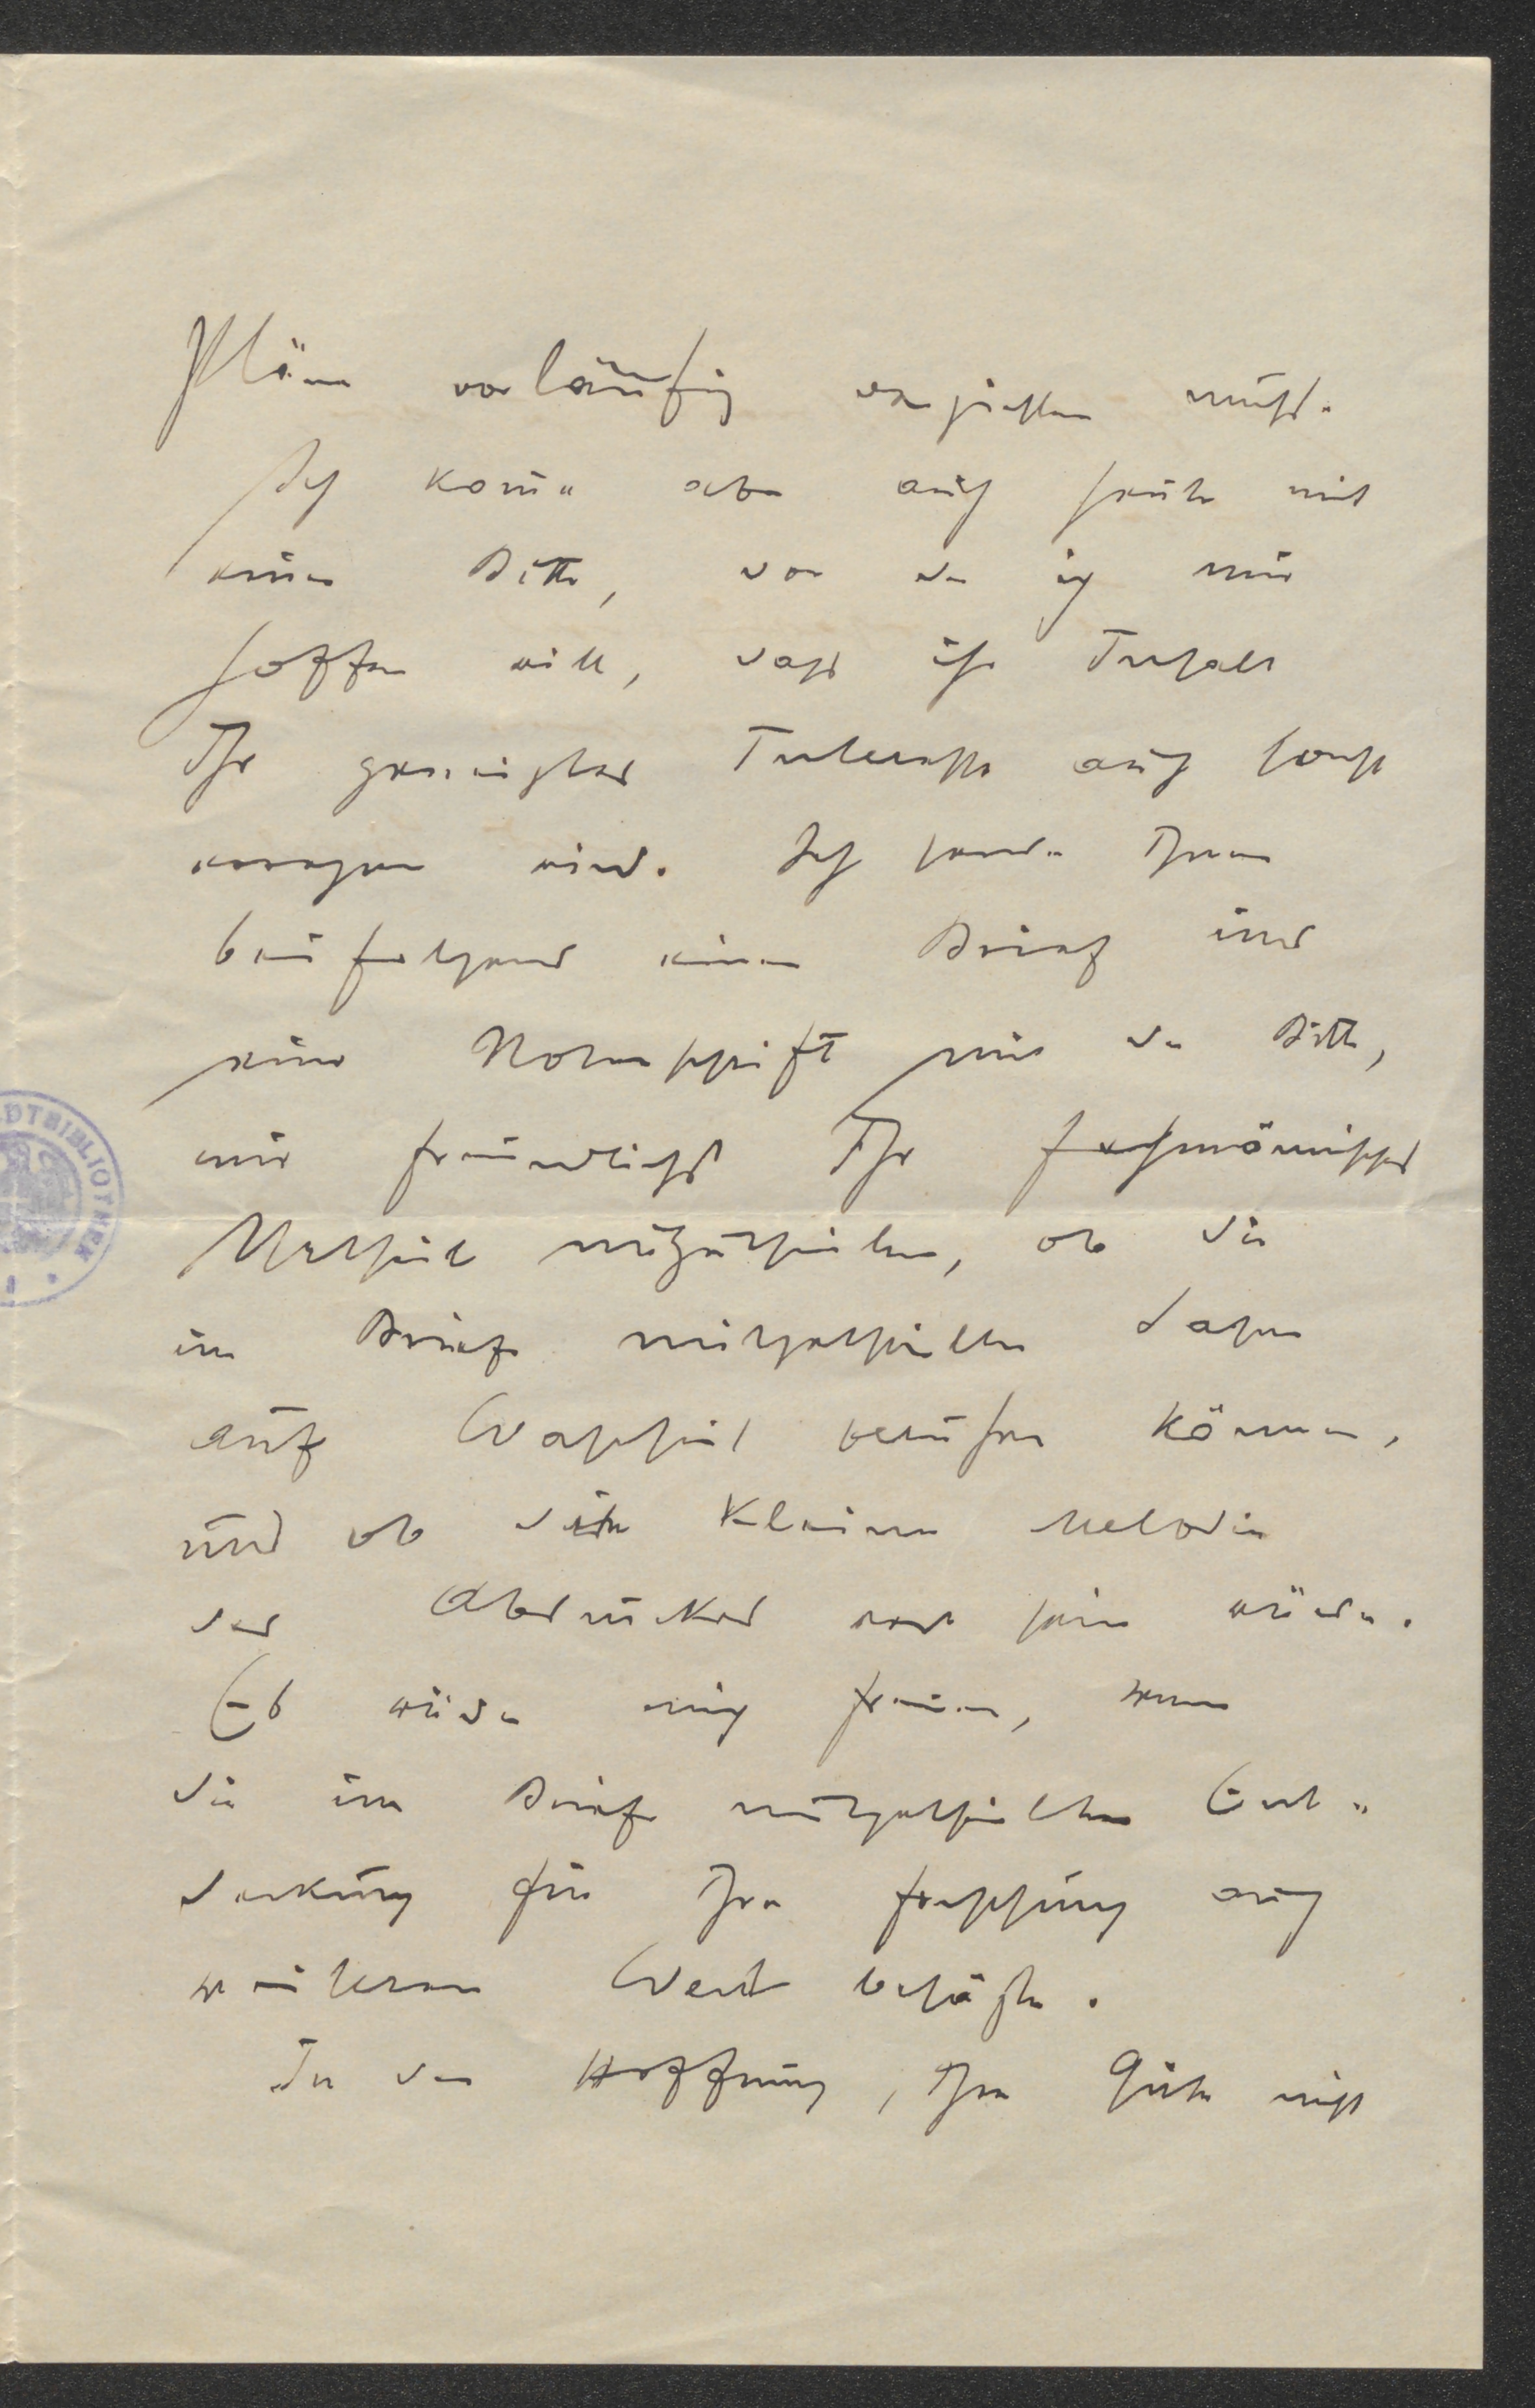 Pläne vorläufig verzichten müsst.
Ich komme aber auch heute mit
einer Bitte, von der ich nur
hoffen will, dass ihr Inhalt
Ihr geneigtes Interesse auch sonst
erregen wird. Ich sende Ihnen
beifolgend einen Brief und
eine Notenschrift mit der Bitte,
mir freundlichst Ihr fachmännisches
Urtheil mitzutheilen, ob die
im Briefe mitgetheilten Daten
auf Wahrheit beruhen können,
und ob die kleine Melodie
des Abdruckes wert sein würde.
Es würde mich freuen, wenn
die im Briefe mitgetheilte Ent-
deckung für Ihre Forschung auch
weiteren Wert besäße.
In der Hoffnung, Ihre Güte nicht
DTBIBLIOTHEK